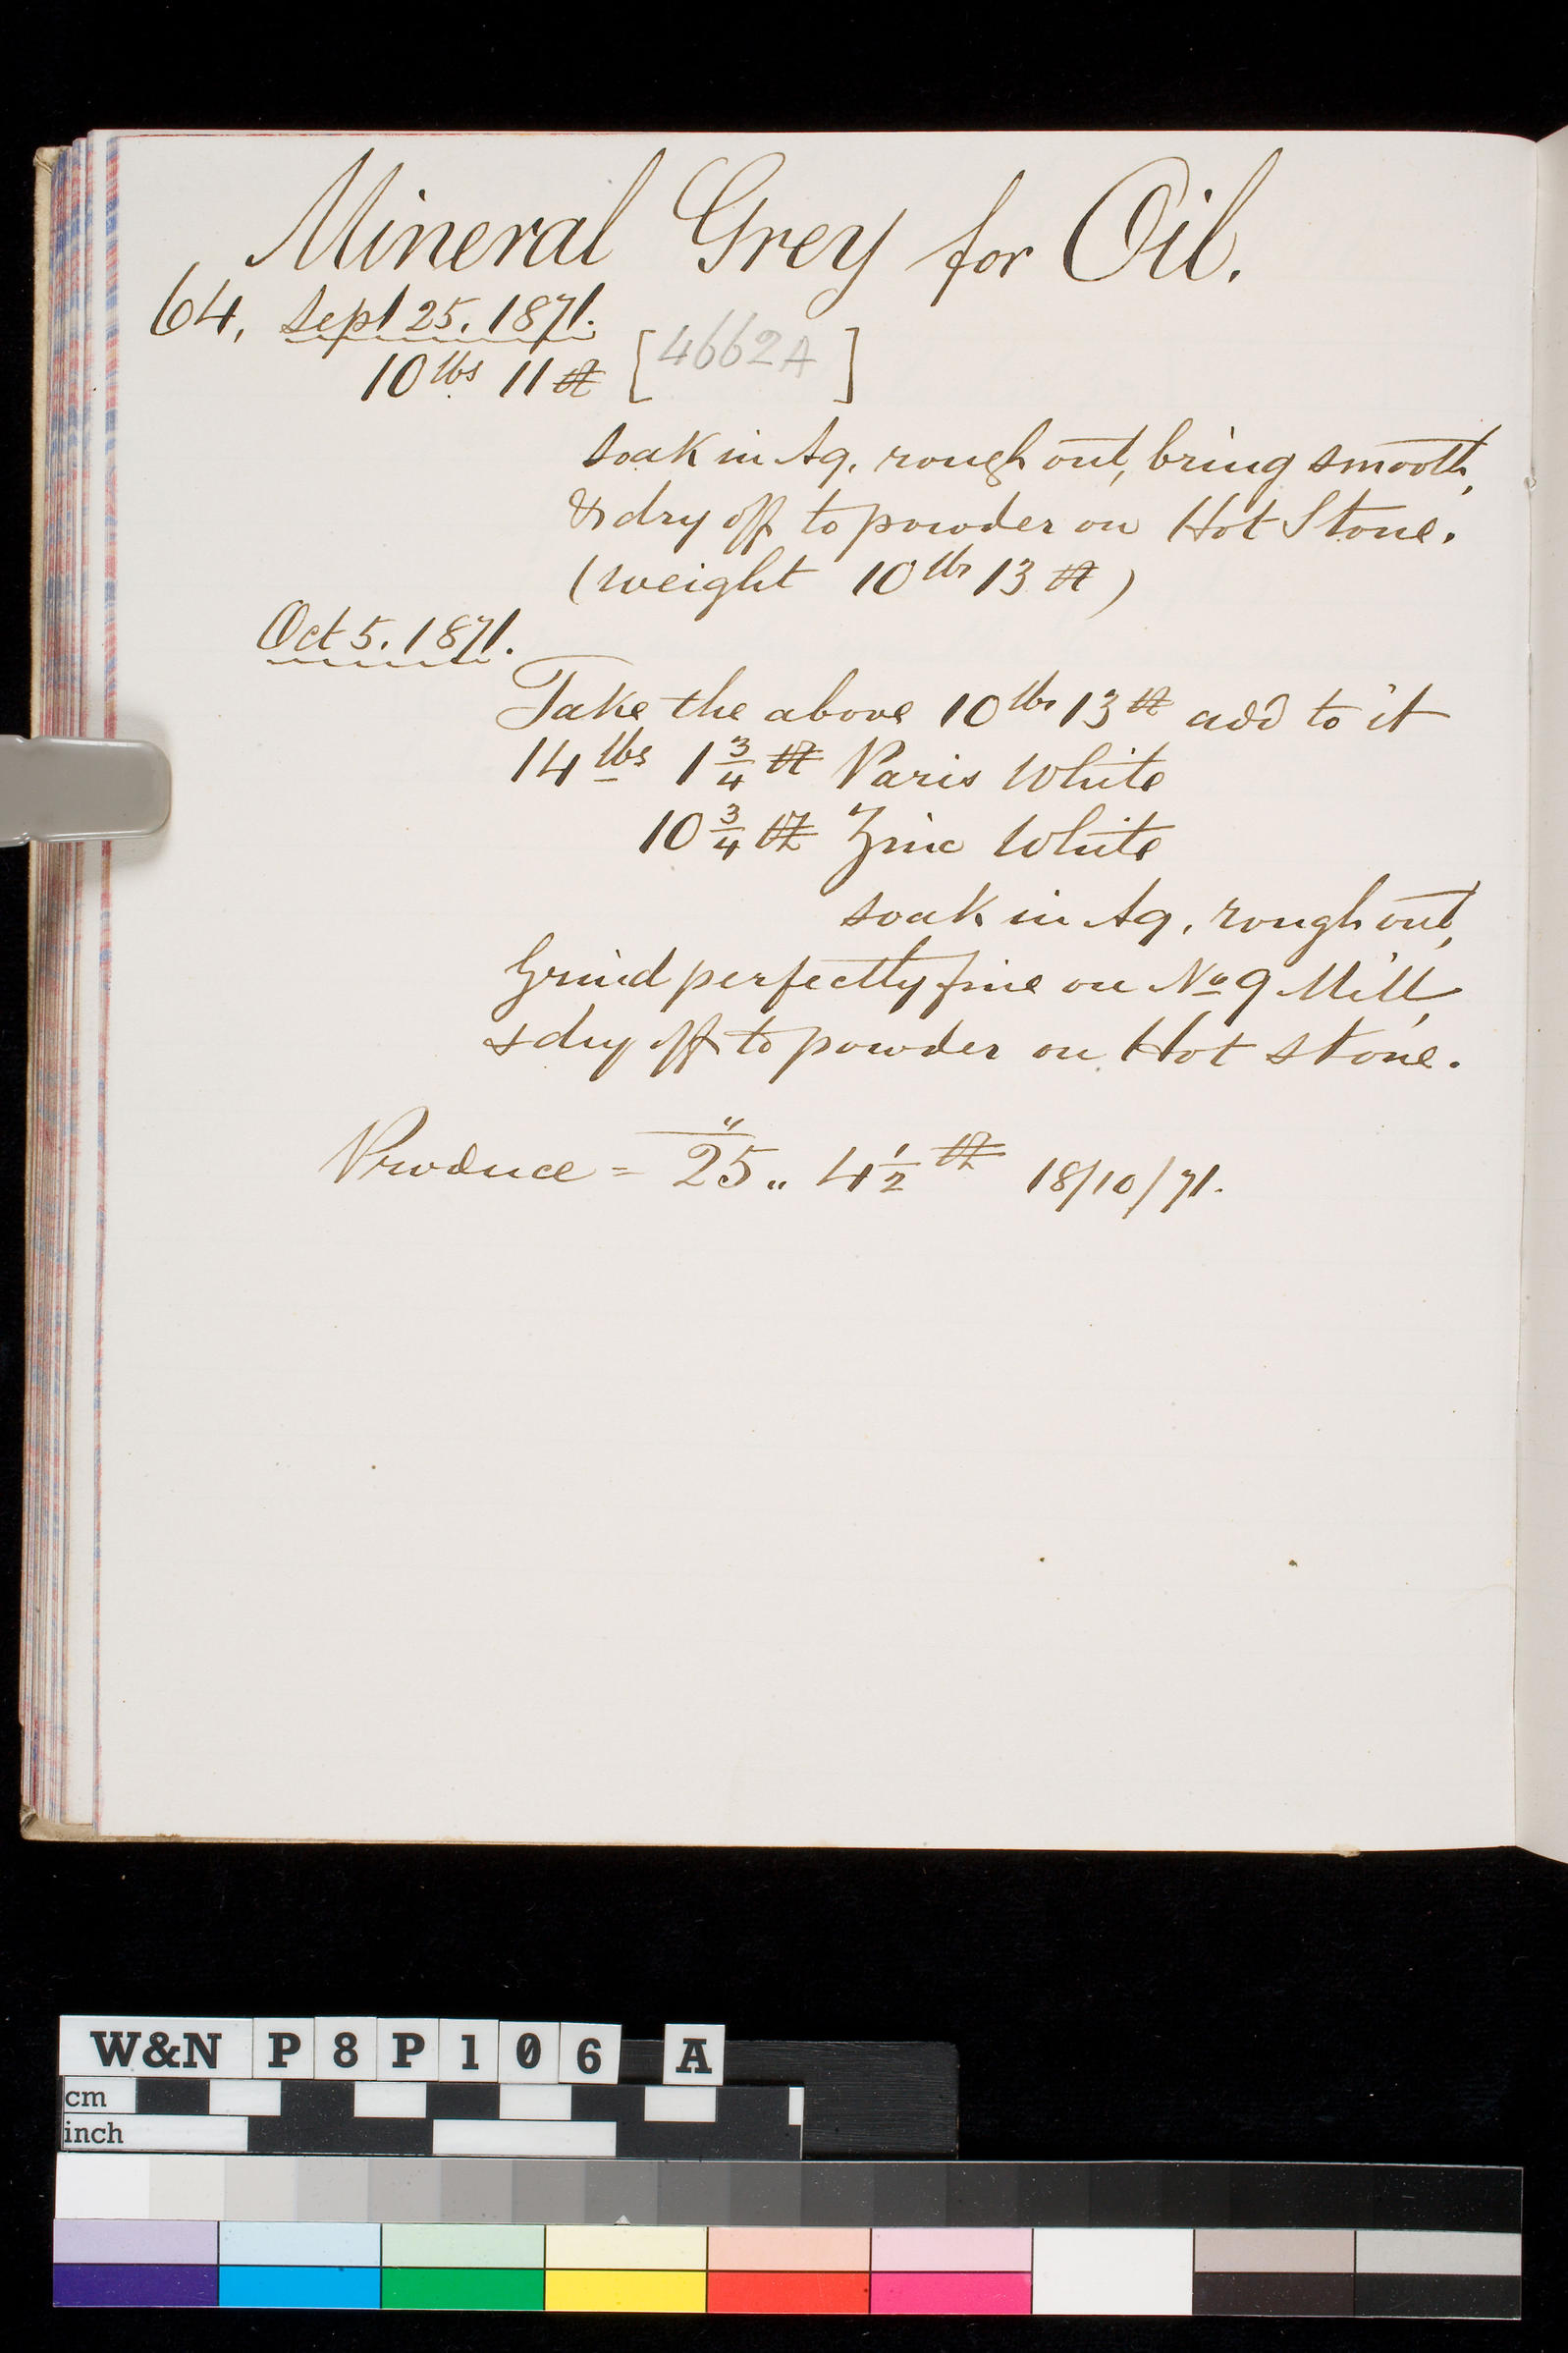 Mineral Grey for Oil.
64. Sept 25. 1871.
10 lbs 11 oz [4662A]
soak in Aq. rough out, bring smooth,
& dry off to powder on Hot Stone.
(weight 10 lbs 13 oz)
Oct 5. 1871.
Take the above 10 lbs 13 oz add to it
14 lbs 1 3/4 oz Paris White
10 3/4 oz Zinc White
soak in Aq. rough out,
Grind perfectly fine on No 9 Mill,
& dry off to powder on Hot stone.
Produce = 25 „ 4 1/2 oz 18/10/71.
W&N P8P106 A
cm
inch